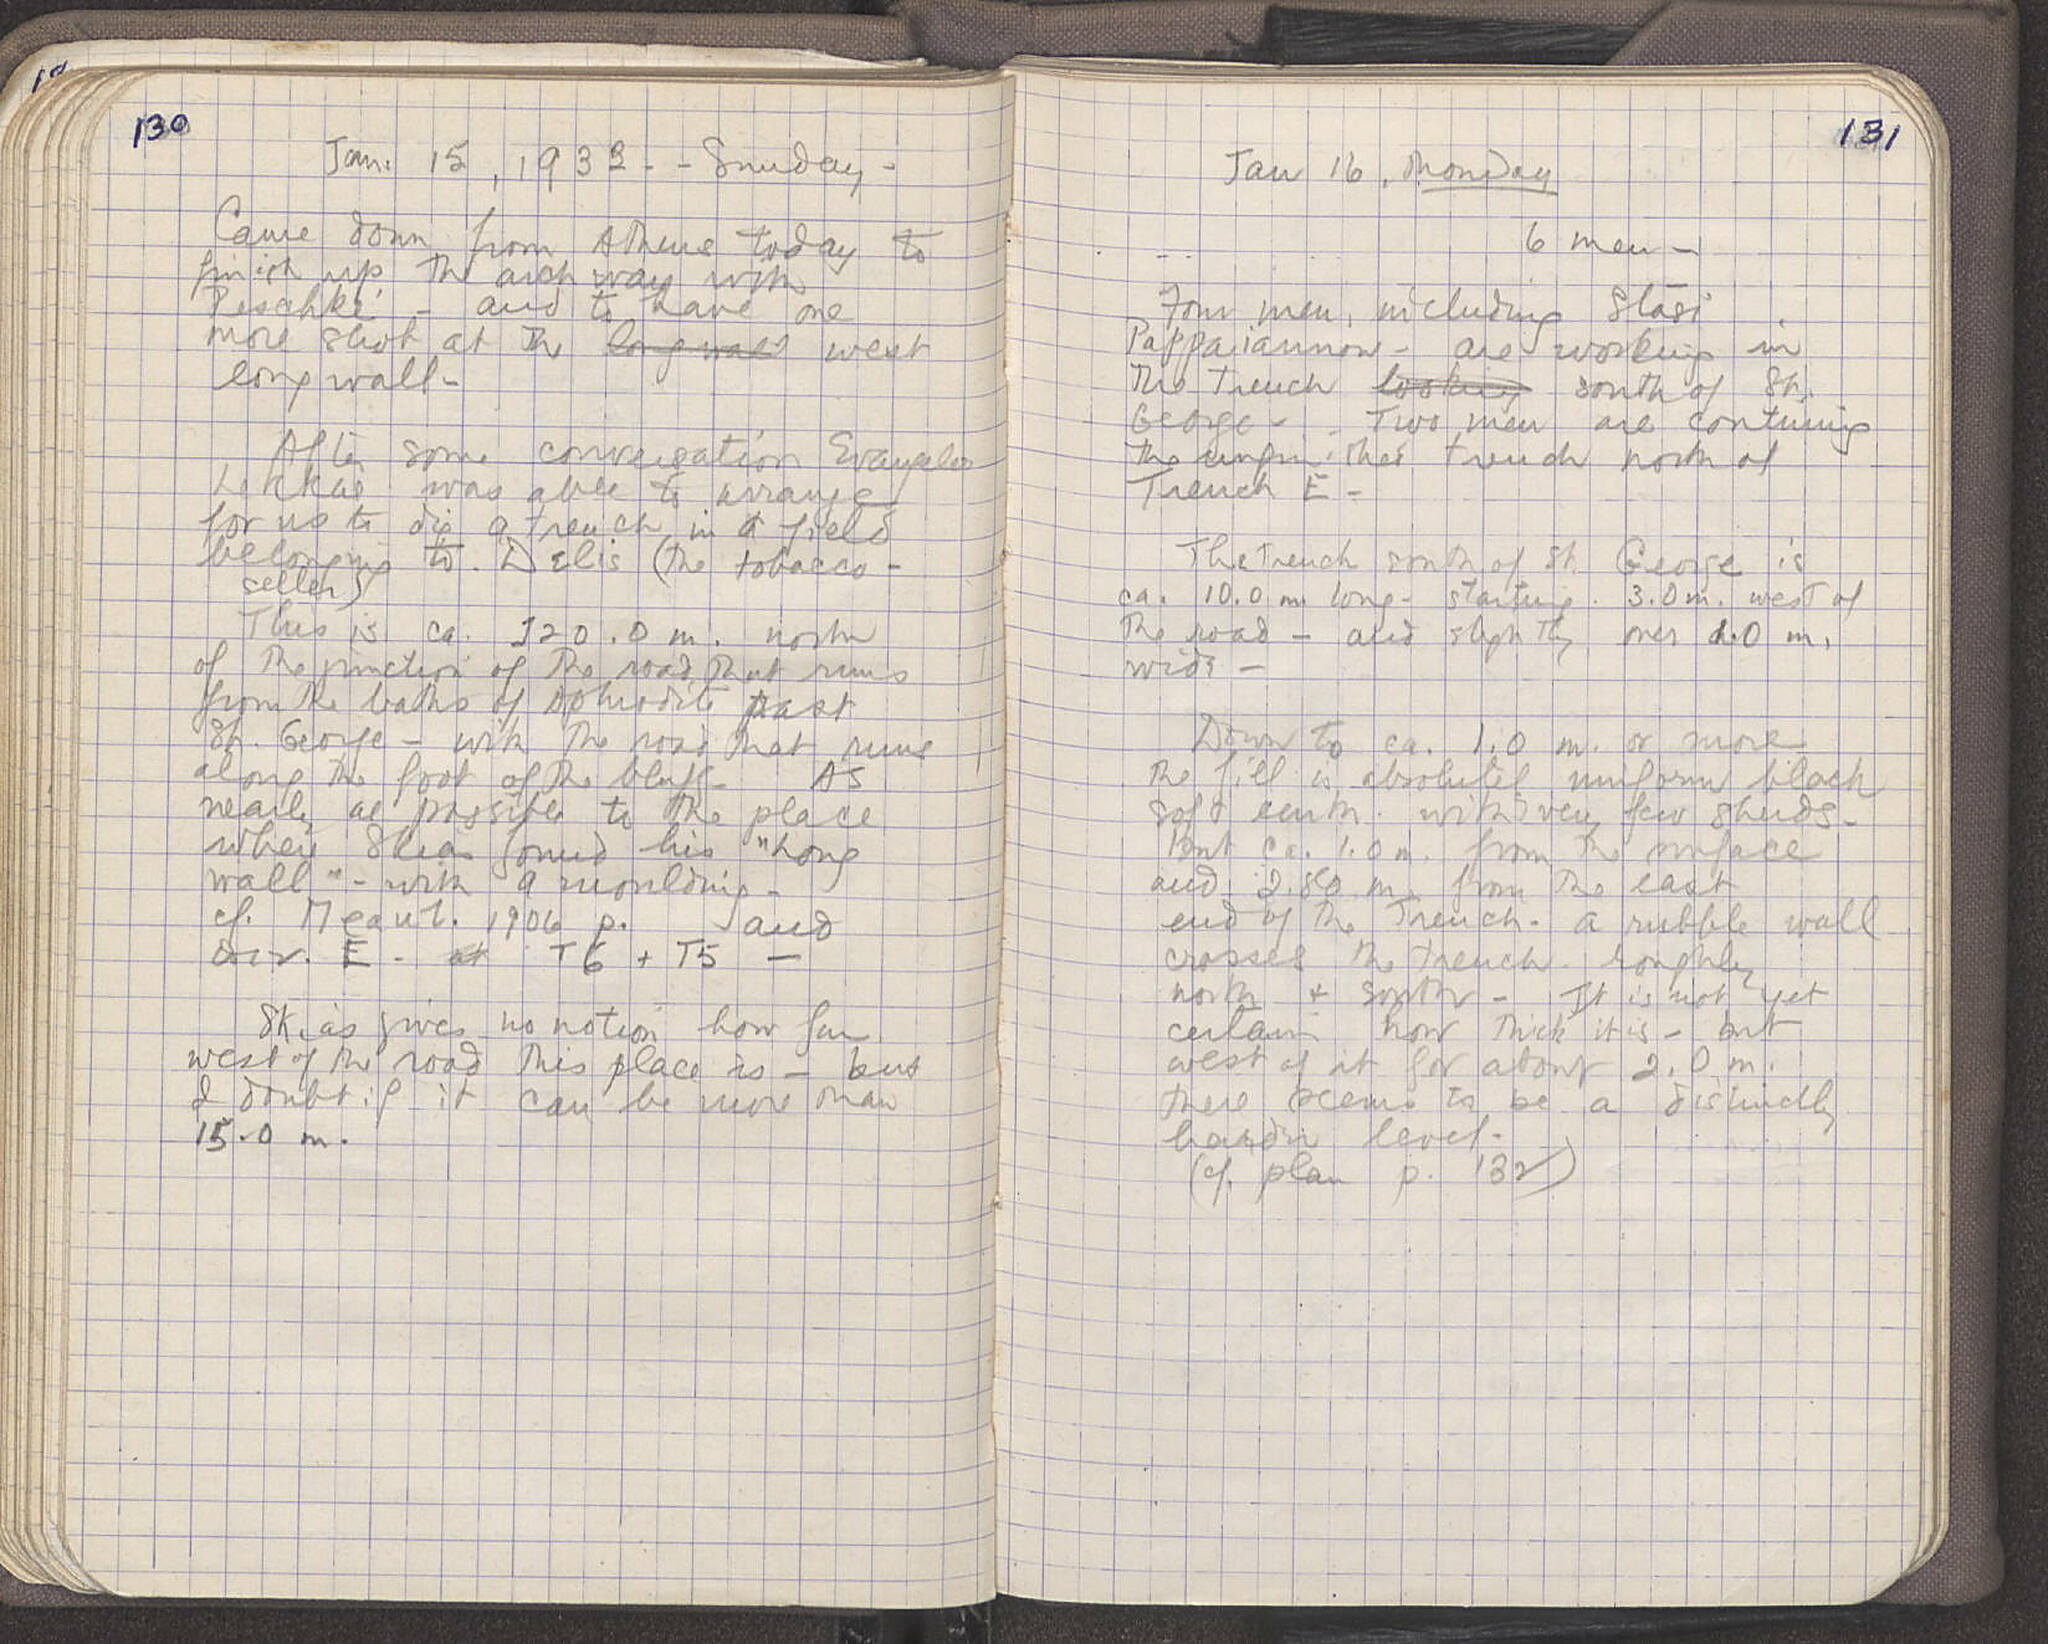 130
Jan. 15, 1933 - - Sunday -
Came down from Athens today to
finish up the archway with
Peschke - and to have one
more shot at the long wall west
long wall -
After some conversation Evangelos
Lekkas was able to arrange
for us to dig a trench in a field
belonging to Delis (the tobacco-
seller)
This is ca. 120.0 m. north
of the junction of the road that runs
from the baths of Aphrodite past
St. George - with the road that runs
along the foot of the bluff - As
nearly as possible to the place
where Skias found his "long
wall" - with a moulding -
cf. 1906 p. and
E - at T6 + T5 -
Skias gives no notion how far
west of the road this place is - but
I doubt if it can be more than
15.0 m.
131
Jan 16, Monday
6 men -
Four men, including Stasi
Pappaiannou - are working in
the trench looking south of St.
George - Two men are contuing
the unfinished trench north of
Trench E -
The trench south of St. George is
ca. 10.0 m. long - starting 3.0 m. west of
the road - and slightly over 1.0 m.
wide -
Down to ca. 1.0 m. or more
the fill is absolutely uniform black
soft earth with very few sherds -
but ca. 1.0 m. from the surface
and 2.80 m. from the east
end of the trench - a rubble wall
crosses the trench roughly
north + south - It is not yet
certain how thick it is - but
west of it for about 2.0 m.
there seems to be a distinctly
harder level -
(cf. plan p. 132)